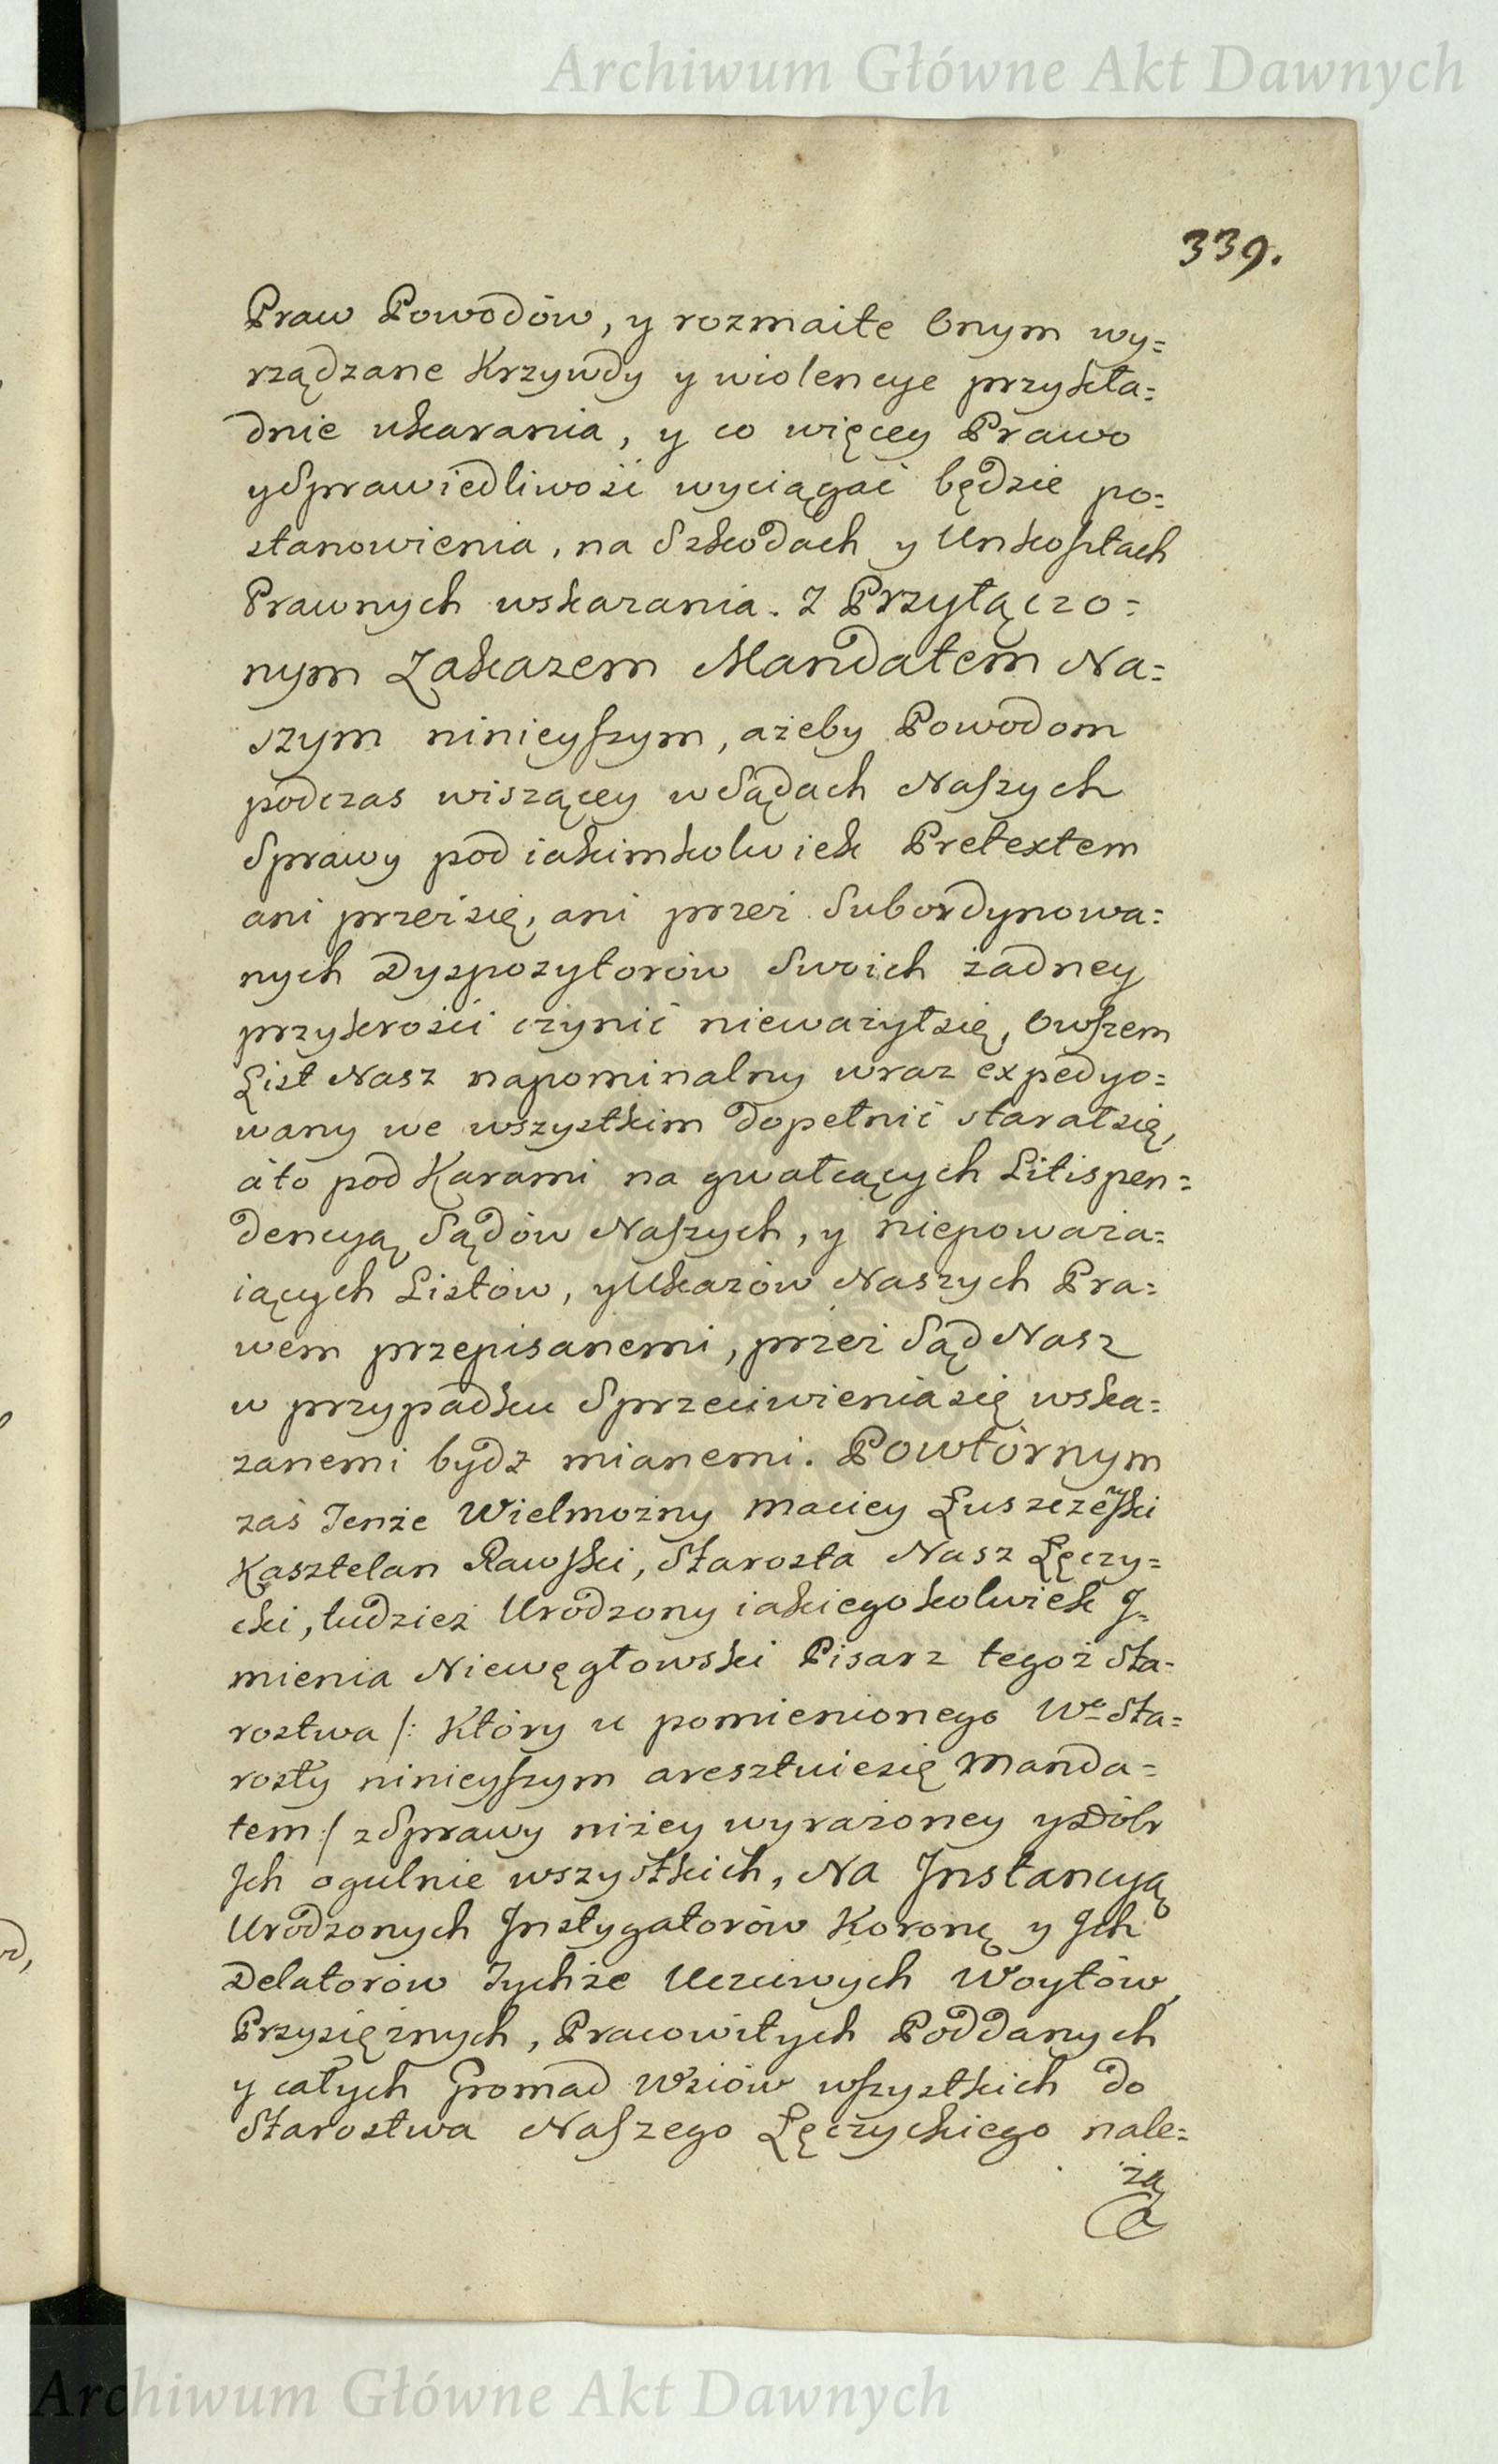 Archiwum Główne Akt Dawnych
339.
Praw Powodów, y rozmaite Onym wy=
rządzane Krzywdy y wiolencye przykła=
dnie ukarania, y co więcey Prawo
y Sprawiedliwość wyciągać będzie po=
stanowienia, na Szkodach y Unkosztach
Prawnych wskazania. Z Przyłączo=
nym Zakazem Mandatem Na=
szym ninieyszym, ażeby Powodom
podczas wiszącey w Sądach Naszych
Sprawy pod iakimkolwiek Pretextem
ani przez się, ani przez Subordynowa=
nych Dyspozytorów Swoich żadney
przykrości czynić nieważył się, Owszem
List Nasz napominalny wraz expedyo=
wany we wszystkim dopełnić starał się,
á to pod Karami na gwałcących Litispen=
dencyą Sądów Naszych, y niepoważa=
iących Listów, y Ukazów Naszych Pra=
wem przepisanemi, przez Sąd Nasz
w przypadku Sprzeciwienia się wska=
zanemi bydz mianemi. Powtórnym
zaś Tenże Wielmożny Maciey Łuszczeski
Kasztelan Rawski, Starosta Nasz Łęczy=
cki, tudzież Urodzony iakiegokolwiek J=
mienia Niewęgłowski Pisarz tegoż Sta=
rostwa /: Który u pomienionego Wo Sta=
rosty ninieyszym aresztuie się Manda=
tem :/ z Sprawy niżey wyrażoney y Dóbr
Jch ogulnie wszystkich, Na Jnstancyą
Urodzonych Jnstygatorów Koronę y Jch
Delatorów Tychże Uczciwych Woytów,
Przysiężnych, Pracowitych Poddanych
y całych Gromad Wsiów wszystkich do
Starostwa Naszego Łęczyckiego nale=
żą
Archiwum Główne Akt Dawnych